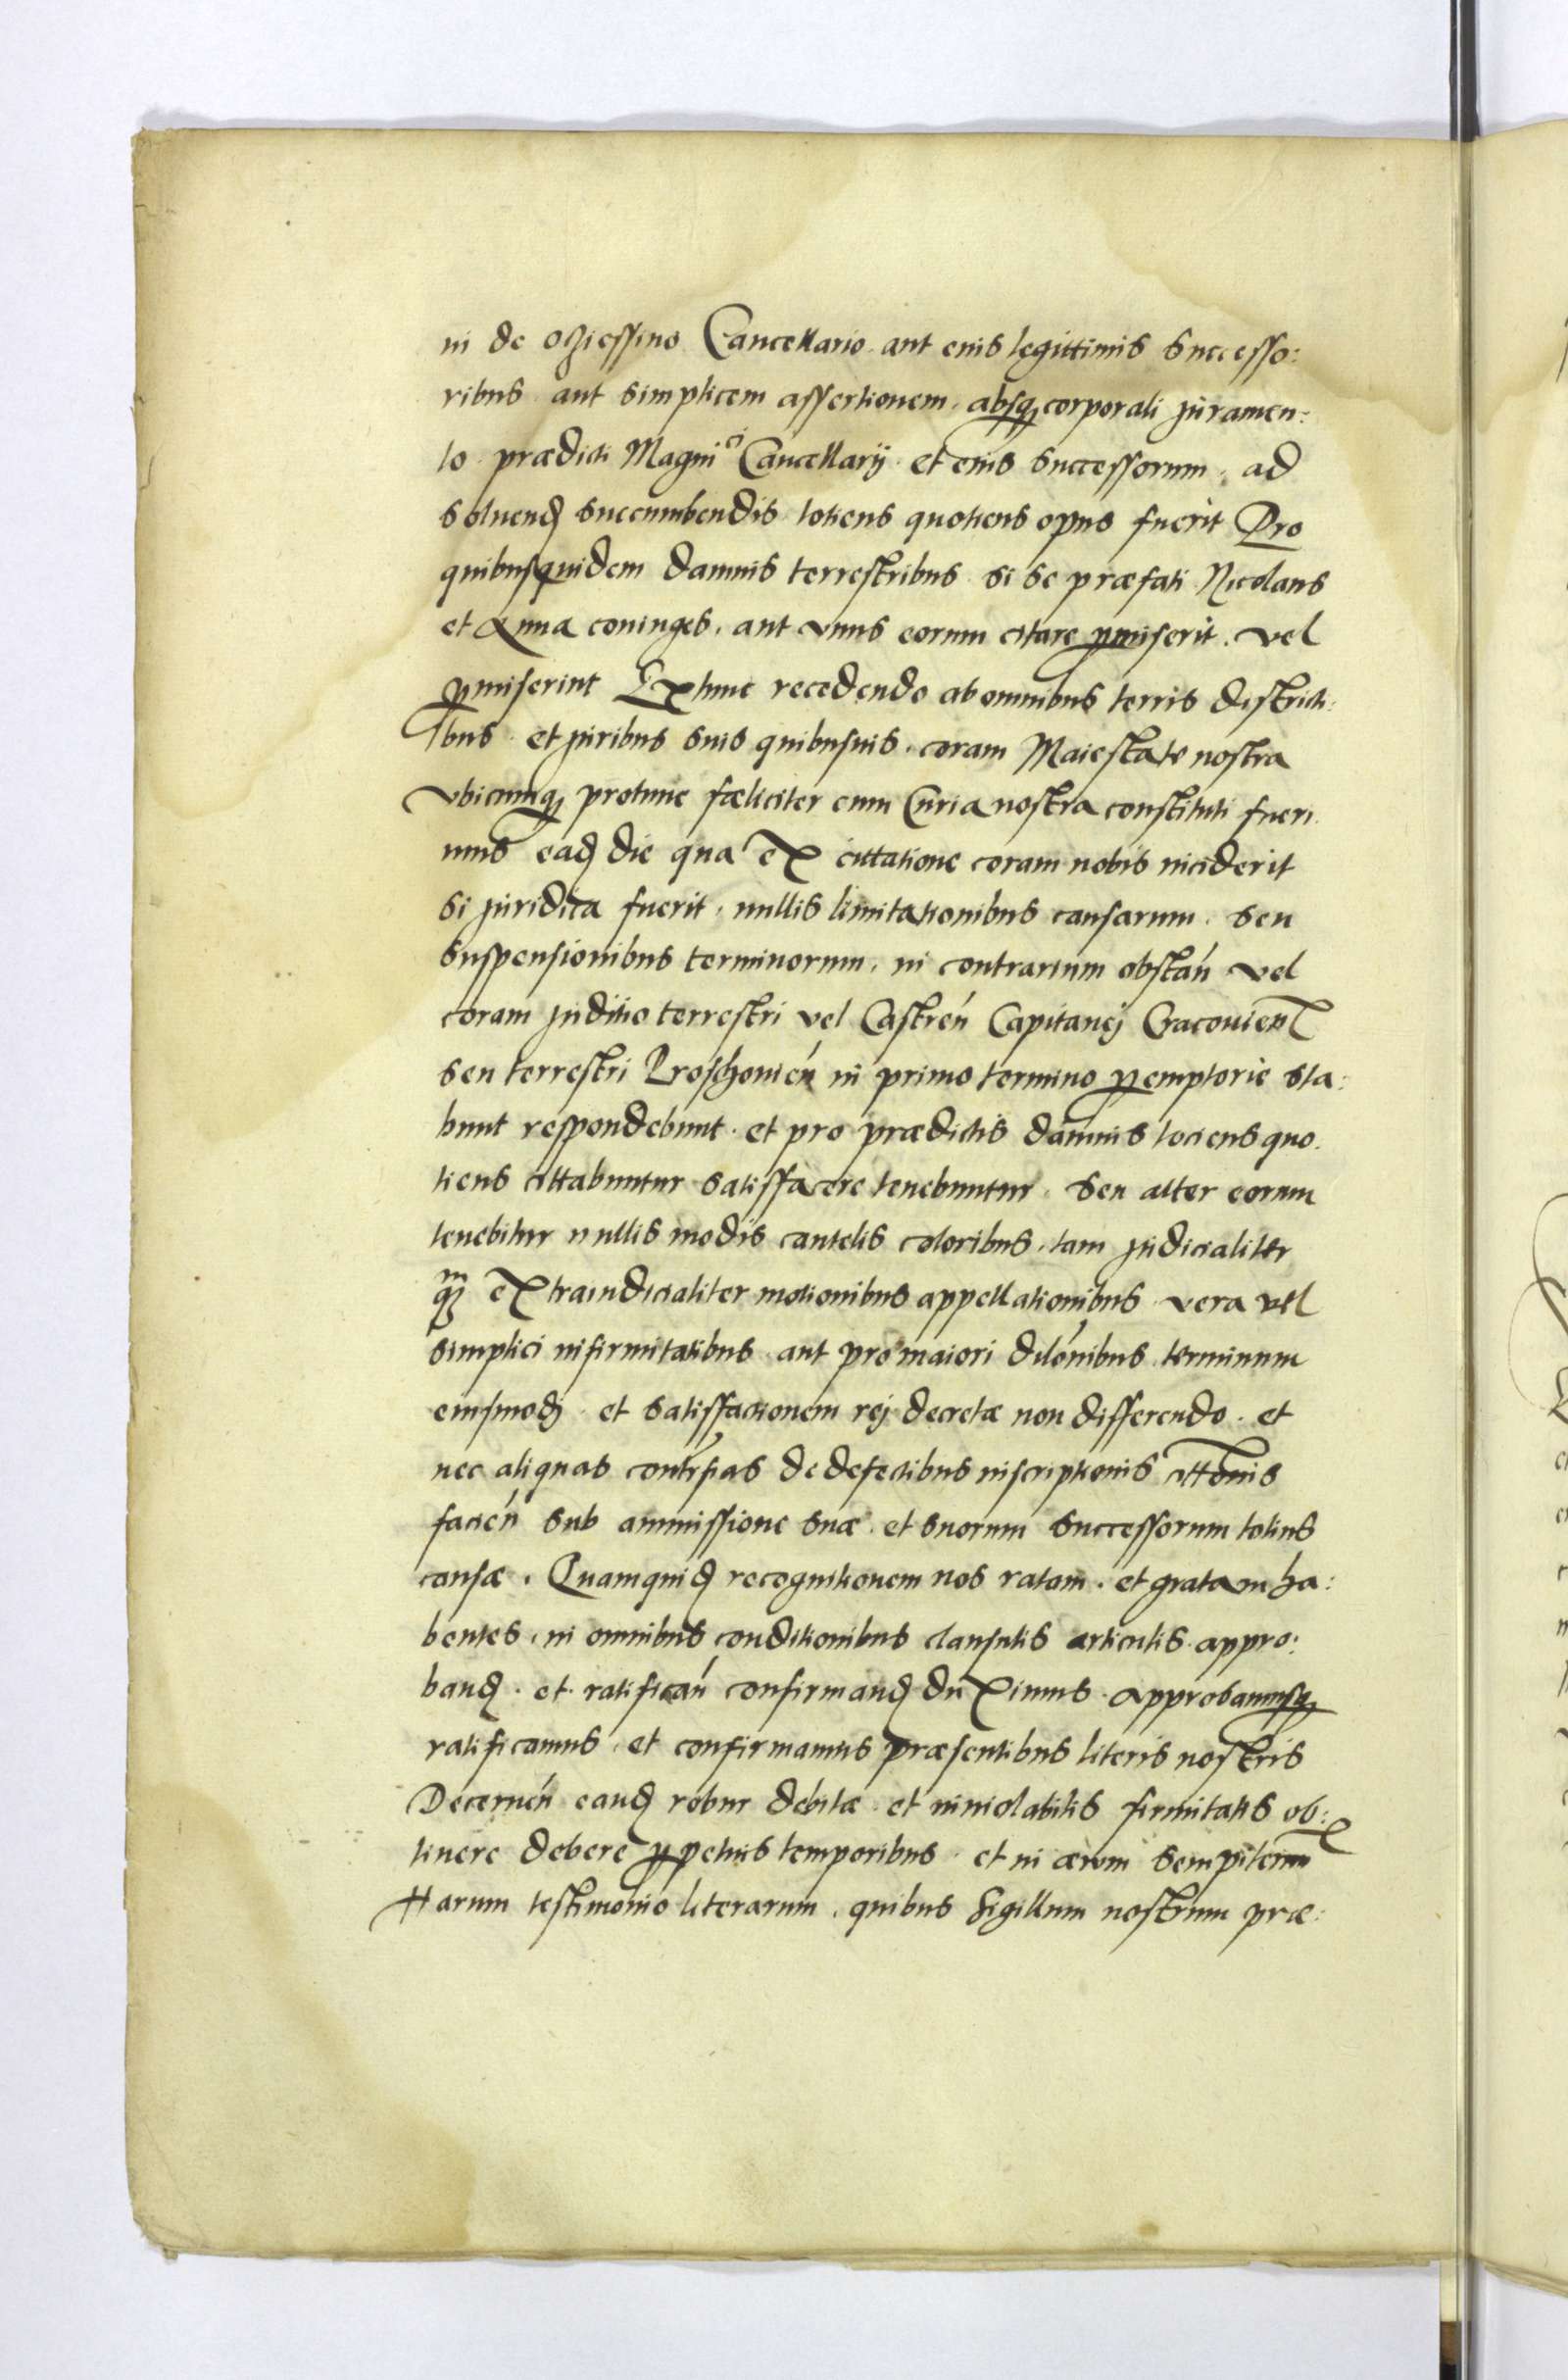 ni de Oziessino Cancellario aut eius legittimis Successo:
ribus aut simplicem assertionem, absq; corporali juramen:
to prædicti Magnici Cancellarij et eius successorum, ad
soluend succumbendis totiens quotiens opus fuerit Pro
quibusquidem damnis terrestribus si se præfati Nicolaus
et Anna coniuges, aut vnus eorum citare pmiserit, vel
pmiserint Extunc recedendo ab omnibus terris districti:
bus et juribus suis quibusuis, coram Maiestate nostra
vbicumq; protunc fæliciter cum Curia nostra constituti fueri
mus ead die qua ex cittatione coram nobis inciderit
si juridica fuerit, nullis limitationibus causarum, seu
suspensionibus terminorum, in contrarium obstan vel
coram juditio terrestri vel Castren Capitanej Cracouien
seu terrestri Proschouien in primo termino pemptorie sta:
bunt respondebunt et pro prædictis damnis tociens quo
tiens cittabuntur satisfacere tenebuntur, seu alter eorum
tenebitur nullis modis cautelis coloribus, tam judicialiter
qm extraiudicialiter motionibus appellationibus vera vel
simplici infirmitatibus aut pro maiori dilonibus terminum
eiusmodj et satisfactionem rej decretæ non differendo et
nec aliquas contrsias de defectibus inscriptionis cittonis
facien sub ammissione suæ et suorum successorum totius
causæ. Quamquid recognitionem nos ratam, et gratam ha:
bentes, in omnibus conditionibus clausulis articulis appro:
band et ratifican confirmand duximus approbamusq;
ratificamus, et confirmamus præsentibus literis nostris
Decernen eand robur debitæ et inuiolabilis firmitatis ob:
tinere debere ppetuis temporibus et in æuum sempitern
Harum testimonio literarum, quibus Sigillum nostrum præ: